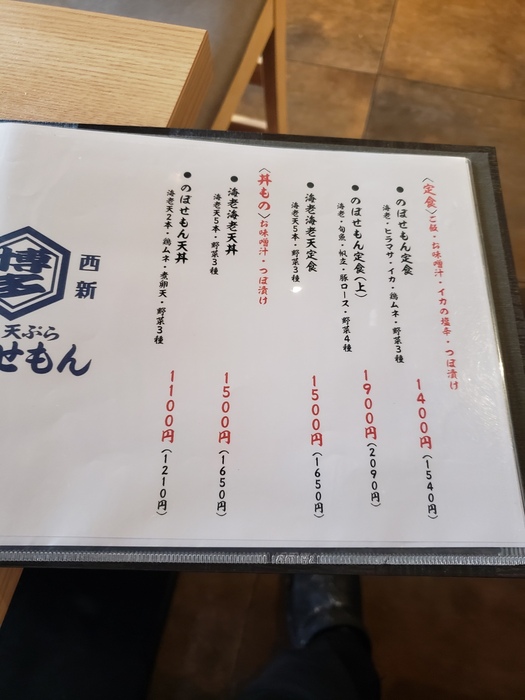 〈定食〉ご飯・お味噌汁・イカの塩辛・つぼ漬け
●のぼせもん定食
海老・ヒラマサ・イカ・鶏ムネ・野菜3種
1400円(1540円)
●のぼせもん定食(上)
海老・旬魚・帆立・豚ロース・野菜4種
1900円(2090円)
●海老海老天定食
海老天5本・野菜3種
1500円(1650円)
〈丼もの〉お味噌汁・つぼ漬け
●海老海老天丼
海老天5本・野菜3種
1500円(1650円)
●のぼせもん天丼
海老天2本・鶏ムネ・煮卵天・野菜3種
1100円(1210円)
西新
博多
天ぷら
せもん